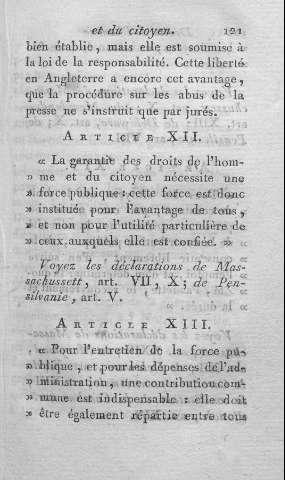 et du citoyen. 121
bien établie, mais elle est soumise à
la loi de la responsabilité. Cette liberté
en Angleterre a encore cet avantage,
que la procédure sur les abus de la
presse ne s'instruit que par jurés.
ARTICLE XII.
« La garantie des droits de l'hom-
» me et du citoyen nécessite une
» force publique : cette force est donc
» instituée pour l'avantage de tous,
» et non pour l'utilité particulière de
» ceux auxquels elle est confiée. »
Voyez les déclarations de Mas-
sachussett, art. VII, X; de Pen-
silvanie, art. V.
ARTICLE XIII.
« Pour l'entretien de la force pu-
» blique, et pour les dépenses de l'ad-
» ministration, une contribution com-
» mune est indispensable : elle doit
» être également répartie entre tous